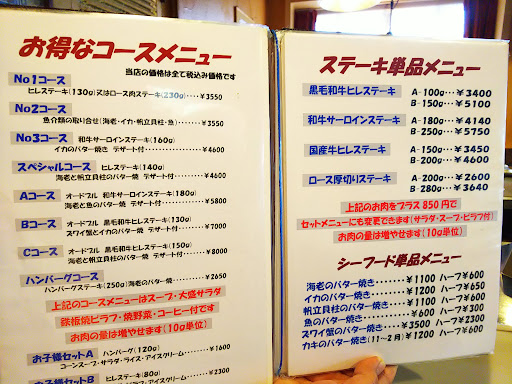 お得なコースメニュー
当店の価格は全て税込み価格です
No1コース
ヒレステーキ(130g)又はロース肉ステーキ(230g)‥‥¥3550
No2コース
魚介類の取り合せ(海老・イカ・帆立貝柱・魚)‥‥‥¥3550
No3コース 和牛サーロインステーキ(160g)
イカのバター焼き デザート付‥‥‥¥4600
スペシャルコース ヒレステーキ(140g)
海老と帆立貝柱のバター焼 デザート付‥‥¥4600
Aコース オードブル 和牛サーロインステーキ(180g)
海老と魚のバター焼 デザート付‥‥¥5800
Bコース オードブル 黒毛和牛ヒレステーキ(130g)
スワイ蟹とイカのバター焼 デザート付‥‥¥7000
Cコース オードブル 黒毛和牛ヒレステーキ(150g)
海老と帆立貝柱のバター焼 デザート付‥‥¥8000
ハンバーグコース
ハンバーグステーキ(250g)海老のバター焼‥‥‥¥2650
上記のコースメニューはスープ・大盛サラダ
鉄板焼ピラフ・焼野菜・コーヒー付です
お肉の量は増やせます(10g単位)
お子様セットA ハンバーグ(120g)
コーンスープ・サラダ・ライス・アイスクリーム‥‥‥¥1600
お子様セットB ヒレステーキ(80g)
¥2300
ステーキ単品メニュー
黒毛和牛ヒレステーキ A-100g‥‥¥3400
B-150g‥‥¥5100
和牛サーロインステーキ A-180g‥‥¥4140
B-250g‥‥¥5750
国産牛ヒレステーキ A-150g‥‥¥3450
B-200g‥‥¥4600
ロース厚切りステーキ A-200g‥‥¥2600
B-280g‥‥¥3640
上記のお肉をプラス850円で
セットメニューにも変更できます(サラダ・スープ・ピラフ付)
お肉の量は増やせます(10g単位)
シーフード単品メニュー
海老のバター焼き‥‥‥‥¥1100 ハーフ¥600
イカのバター焼き‥‥‥‥¥1200 ハーフ¥650
帆立貝柱のバター焼き‥‥¥1100 ハーフ¥600
魚のバター焼き‥‥‥‥‥¥600 ハーフ¥300
スワイ蟹のバター焼き‥‥¥3500 ハーフ¥2300
カキのバター焼き(11〜2月)¥1200 ハーフ¥600